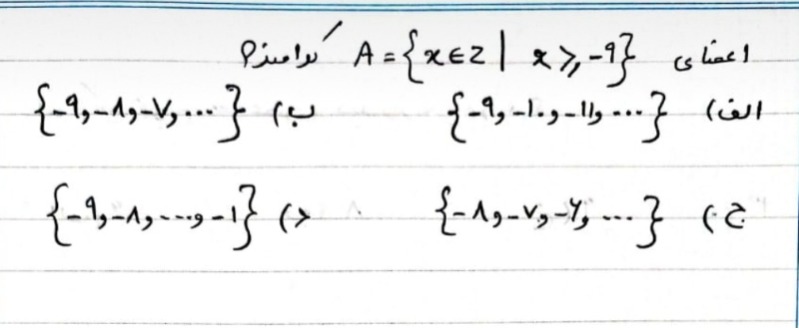 اعضای A = {x ∈ Z | x ⩾ -۹} کدامند؟
الف) {-۹, -۱۰, -۱۱, ...} ب) {-۹, -۸, -۷, ...}
ج) {-۸, -۷, -۶, ...} د) {-۹, -۸, ..., -۱}